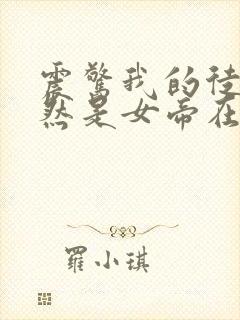 震驚我的徒
然是女帝在
羅小琪